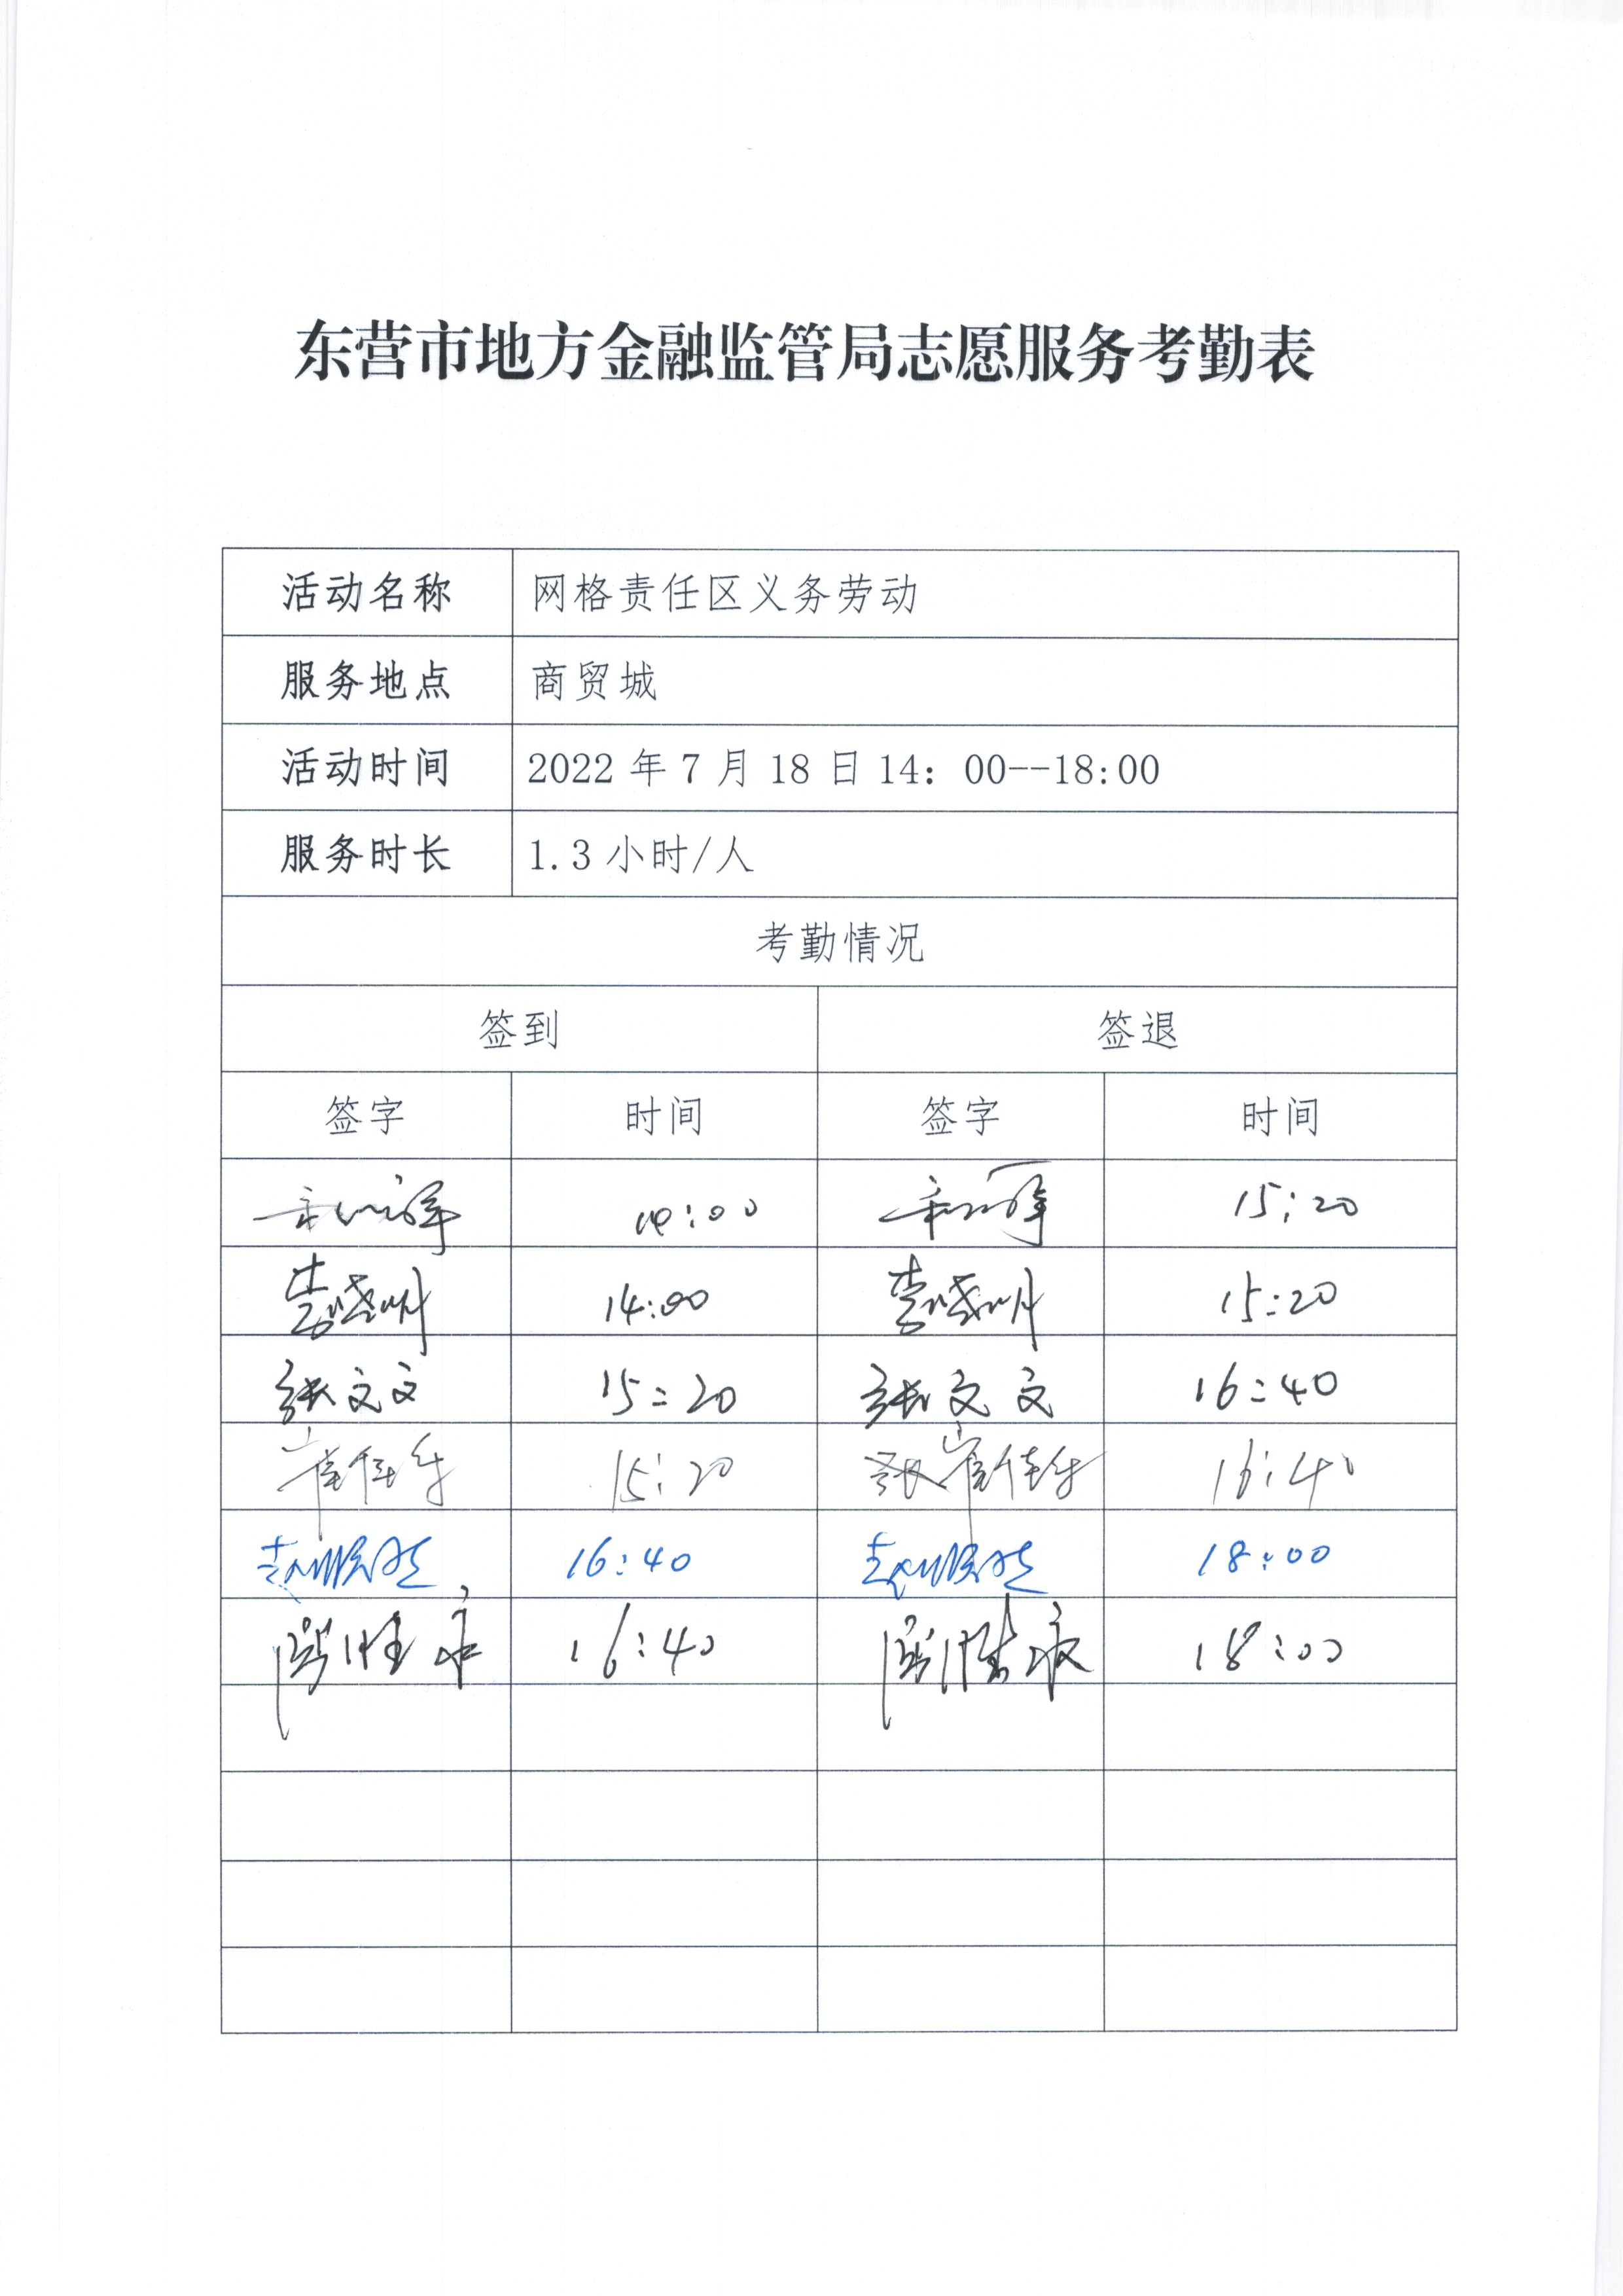 东营市地方金融监管局志愿服务考勤表
活动名称 网格责任区义务劳动
服务地点 商贸城
活动时间 2022年7月18日14：00--18:00
服务时长 1.3小时/人
考勤情况
签到 签退
签字 时间 签字 时间
14:00 15:20
李晓明 14:00 李晓明 15:20
张文文 15:20 张文文 16:40
15:20 16:40
16:40 18:00
16:40 18:00